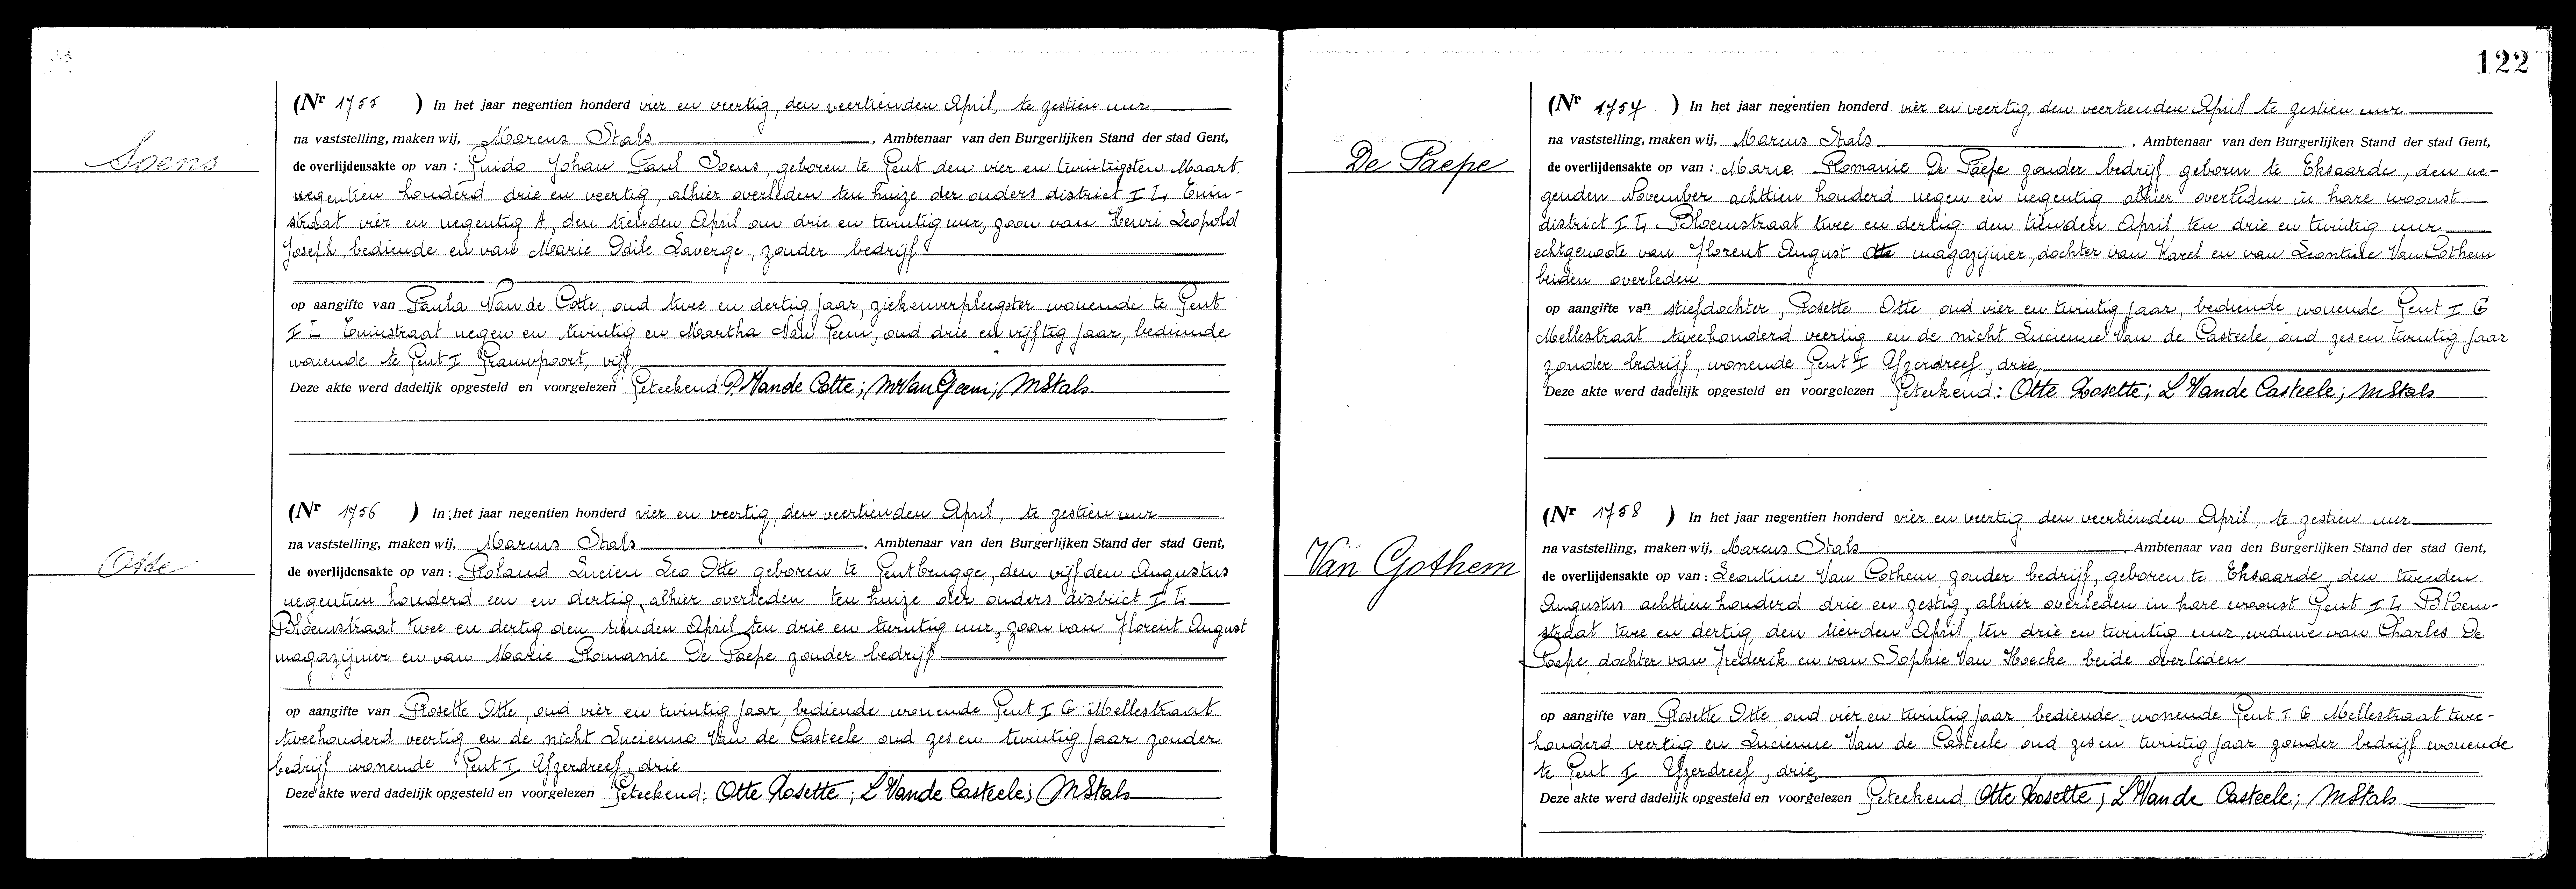 122
Soens
(Nr 1755 ) In het jaar negentien honderd vier en veertig, den veertienden April, te zestien uur
na vaststelling, maken wij, Marcus Stals, Ambtenaar van den Burgerlijken Stand der stad Gent,
de overlijdensakte op van : Guido Johan Paul Soens, geboren te Gent den vier en twintigsten Maart
negentien honderd drie en veertig, alhier overleden ten huize der ouders district I L Tuin-
straat vier en negentig A, den tienden April om drie en twintig uur, zoon van Henri Leopold
Joseph, bediende en van Marie Odile Laverge, zonder bedrijf
op aangifte van Paula Van de Cotte, oud twee en dertig jaar, ziekenverpleegster wonende te Gent
I L Tuinstraat negen en twintig en Martha Van Geem, oud drie en vijftig jaar, bediende
wonende te Gent I Grauwpoort, vijf
Deze akte werd dadelijk opgesteld en voorgelezen Geteekend: P. Vande Cotte; M Van Geem; M Stals
Otte
(Nr 1756 ) In het jaar negentien honderd vier en veertig, den veertienden April, te zestien uur
na vaststelling, maken wij, Marcus Stals, Ambtenaar van den Burgerlijken Stand der stad Gent,
de overlijdensakte op van : Roland Lucien Leo Otte geboren te Gentbrugge, den vijfden Augustus
negentien honderd een en dertig, alhier overleden ten huize der ouders district I L
Bloemstraat twee en dertig den tienden April ten drie en twintig uur, zoon van Florent August
magazijnier en van Marie Romanie De Paepe zonder bedrijf
op aangifte van Rosette Otte, oud vier en twintig jaar, bediende wonende Gent I G Mellestraat
tweehonderd veertig en de nicht Lucienne Van de Casteele oud zes en twintig jaar zonder
bedrijf wonende Gent I Yzerdreef, drie
Deze akte werd dadelijk opgesteld en voorgelezen Geteekend: Otte Rosette; L Vande Casteele; M Stals
De Paepe
(Nr 1757 ) In het jaar negentien honderd vier en veertig, den veertienden April te zestien uur
na vaststelling, maken wij, Marcus Stals, Ambtenaar van den Burgerlijken Stand der stad Gent,
de overlijdensakte op van : Marie Romanie De Paepe zonder bedrijf geboren te Eksaarde, den ne-
genden November achttien honderd negen en negentig alhier overleden in hare woonst
district I L Bloemstraat twee en dertig den tienden April ten drie en twintig uur
echtgenoote van Florent August Otte magazijnier, dochter van Karel en van Leontine Van Cothem
beiden overleden.
op aangifte van stiefdochter, Rosette Otte oud vier en twintig jaar, bediende wonende Gent I G
Mellestraat tweehonderd veertig en de nicht Lucienne Van de Casteele, oud zes en twintig jaar
zonder bedrijf, wonende Gent I Yzerdreef, drie
Deze akte werd dadelijk opgesteld en voorgelezen Geteekend: Otte Rosette; L Vande Casteele; M Stals
Van Gothem
(Nr 1758 ) In het jaar negentien honderd vier en veertig den veertienden April, te zestien uur
na vaststelling, maken wij, Marcus Stals, Ambtenaar van den Burgerlijken Stand der stad Gent,
de overlijdensakte op van : Leontine Van Cothem zonder bedrijf, geboren te Eksaarde, den tweeden
Augustus achttien honderd drie en zestig, alhier overleden in hare woonst Gent I L Bloem-
straat twee en dertig, den tienden April ten drie en twintig uur, weduwe van Charles De
Paepe dochter van Frederik en van Sophie Van Hoecke beide overleden
op aangifte van Rosette Otte oud vier en twintig jaar bediende wonende Gent I G Mellestraat twee-
honderd veertig en Lucienne Van de Casteele oud zes en twintig jaar zonder bedrijf wonende
te Gent I Yzerdreef, drie
Deze akte werd dadelijk opgesteld en voorgelezen Geteekend Otte Rosette; L Vande Casteele; M Stals